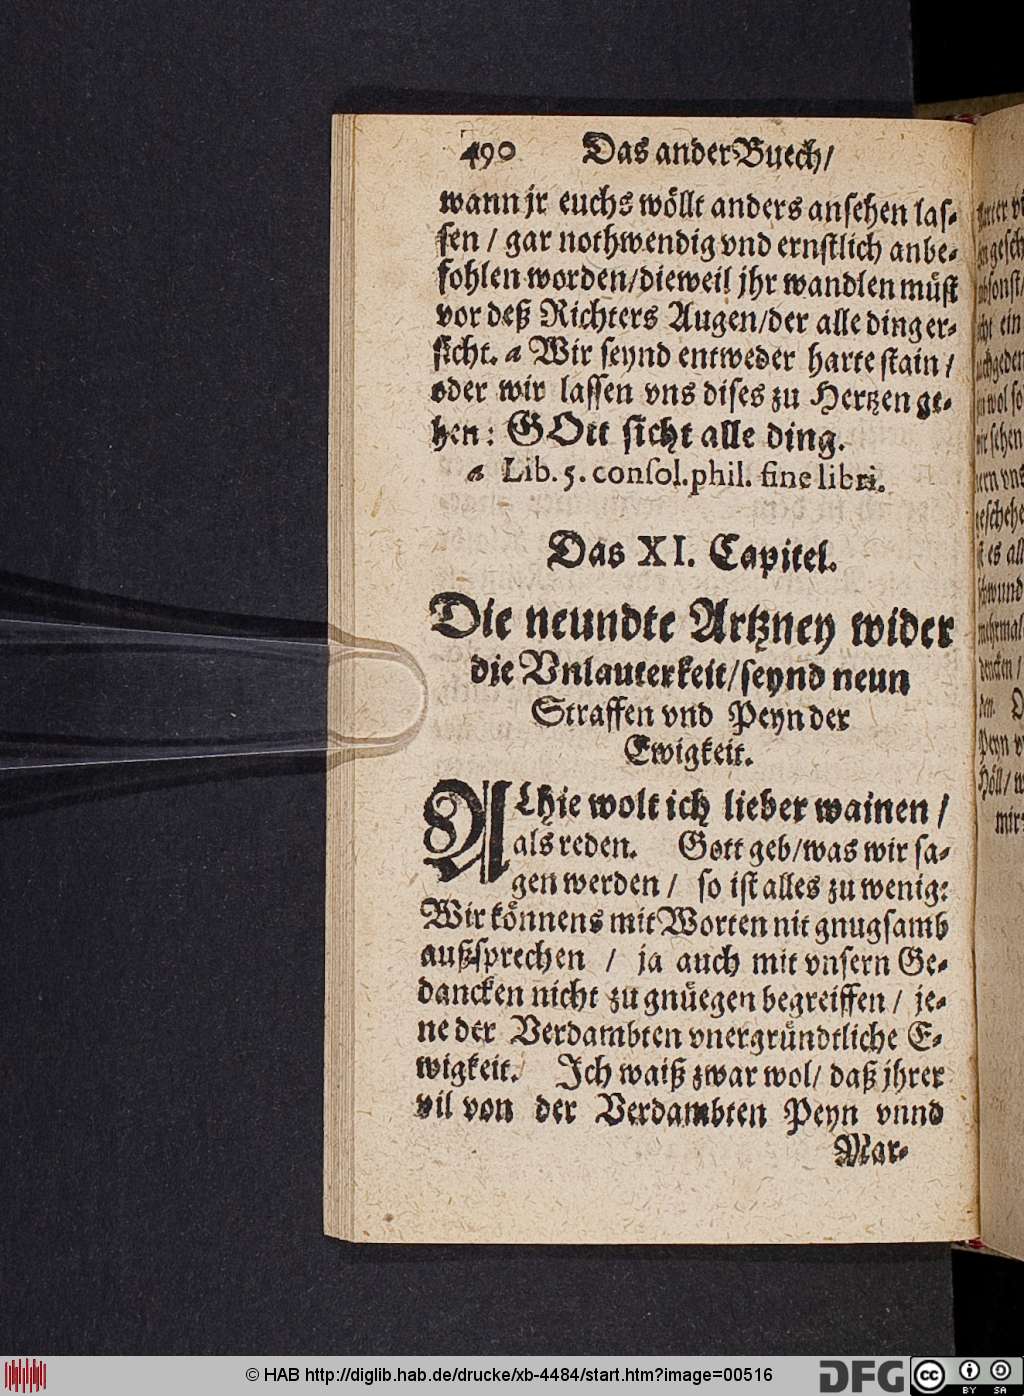 490 Das ander Buech/
wann jr euchs wöllt anders ansehen las-
sen / gar nothwendig vnd ernstlich anbe-
fohlen worden/dieweil jhr wandlen müst
vor deß Richters Augen/der alle ding er-
sicht. a Wir seynd entweder harte stain /
oder wir lassen vns dises zu Hertzen ge-
hen: GOtt sicht alle ding.
a Lib. 5. consol. phil. fine libri.
Das XI. Capitel.
Die neundte Artzney wider
die Vnlauterkeit/seynd neun
Straffen vnd Peyn der
Ewigkeit.
Alhie wolt ich lieber wainen /
als reden. Gott geb/was wir sa-
gen werden / so ist alles zu wenig:
Wir können's mit Worten nit gnugsamb
außsprechen / ja auch mit vnsern Ge-
dancken nicht zu gnüegen begreiffen / je-
ne der Verdambten vnergründtliche E-
wigkeit. Ich waiß zwar wol/ daß jhrer
vil von der Verdambten Peyn vnnd
Mar-
© HAB http://diglib.hab.de/drucke/xb-4484/start.htm?image=00516
DFG
cc BY SA